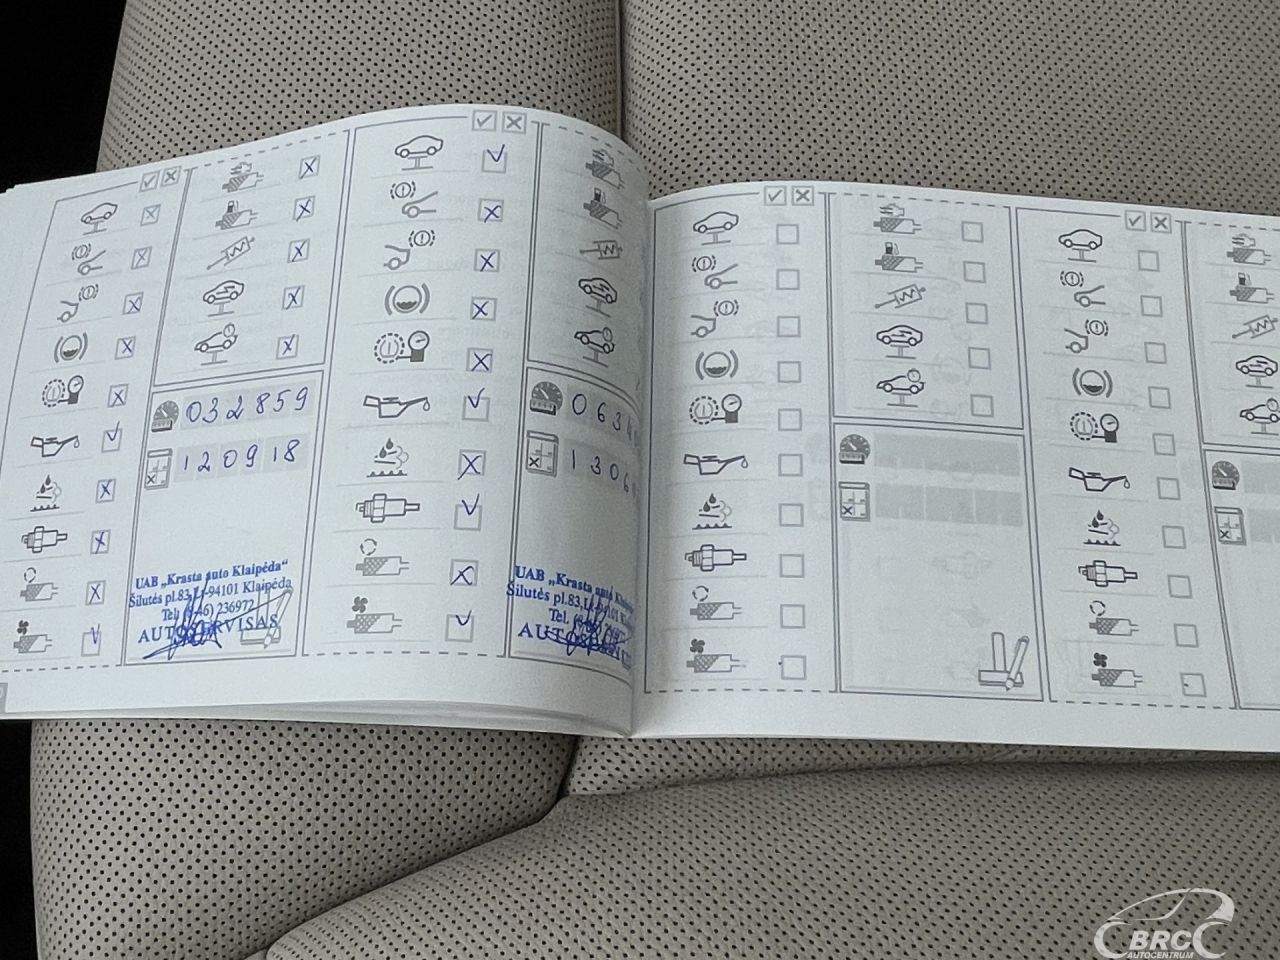 032859
120918
UAB „Krasta auto Klaipėda“
Šilutės pl.83, Lt-94101 Klaipėda
Tel. (8-46) 236972
AUTOSERVISAS
063
1306
UAB „Krasta auto
Šilutės pl.83, Lt-94101
Tel. (8-46)
BRC
AUTOCENTRUM